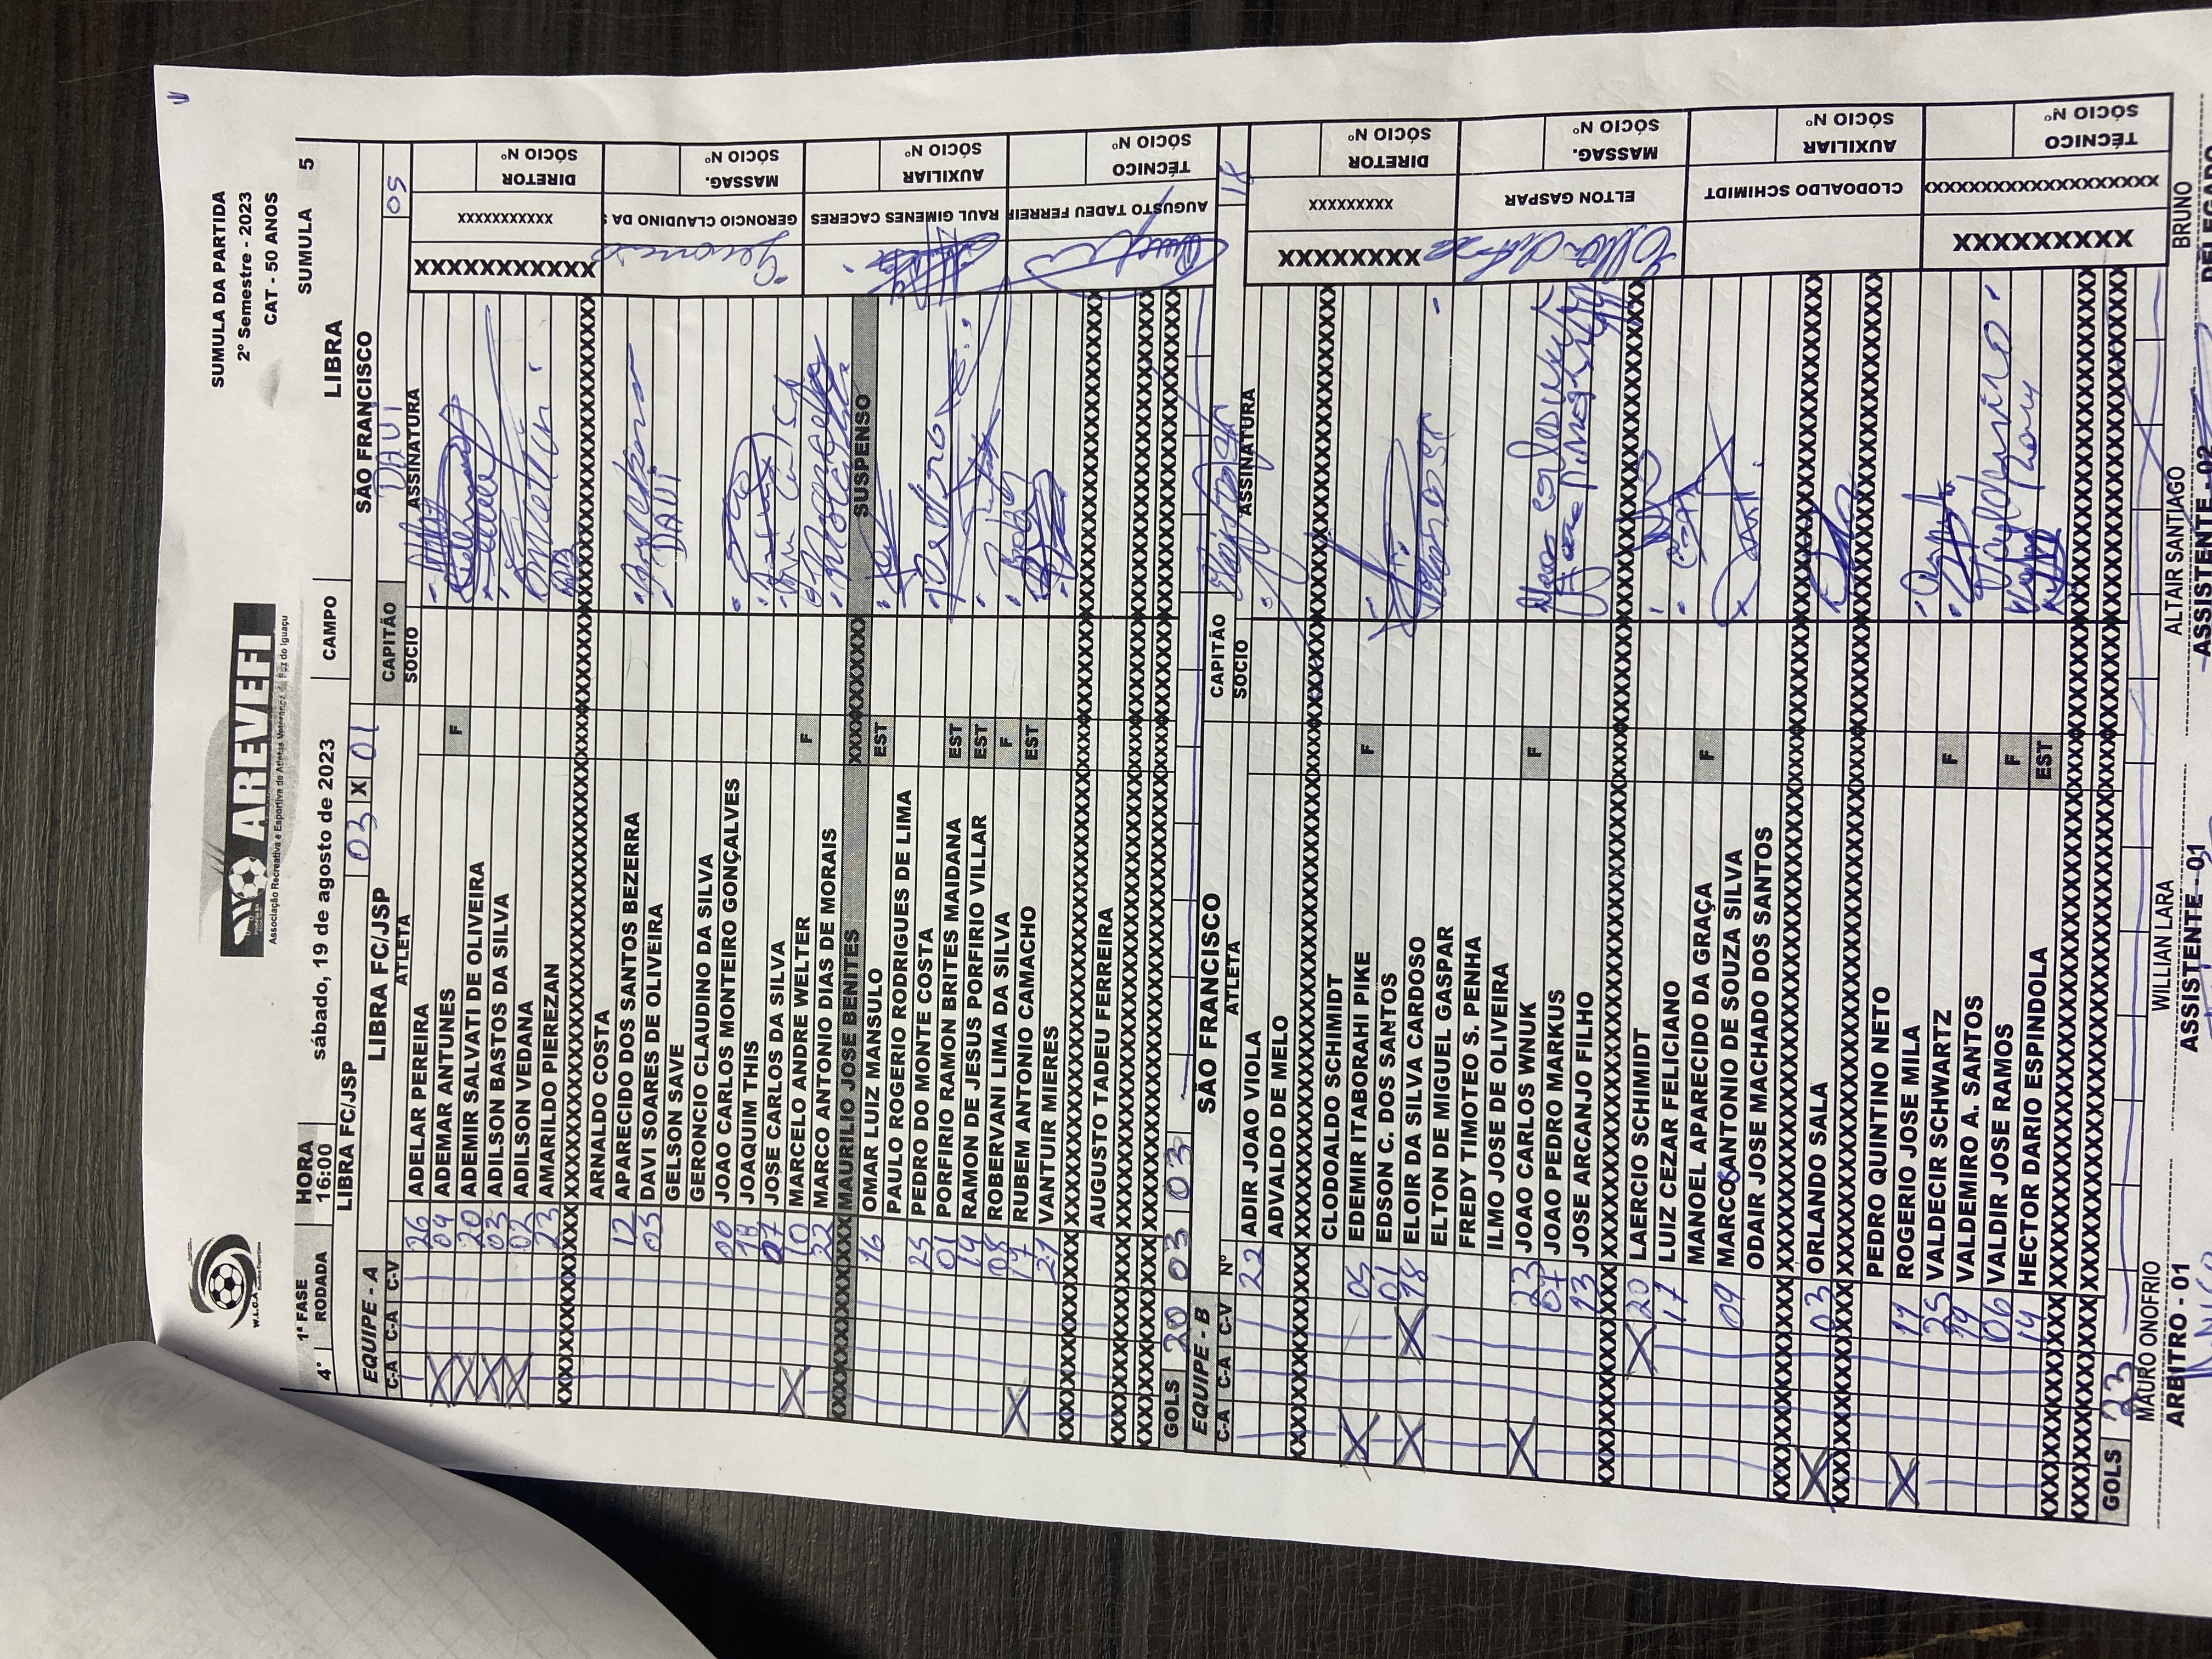 W.L.C.A
AREVEFI
Associação Recreativa e Esportiva de Atletas Veteranos de Foz do Iguaçu
SUMULA DA PARTIDA
2º Semestre - 2023
CAT - 50 ANOS
1ª FASRE HORA sábado, 19 de agosto de 2023 CAMPO LIBRA SUMULA 5
4º RODADA 16:00
LIBRA FC/JSP 03 X 01 SÃO FRANCISCO
EQUIPE - A LIBRA FC/JSP CAPITÃO DAVI 05
C-A C-A C-V ATLETA SOCIO ASSINATURA
26 ADELAR PEREIRA
04 ADEMAR ANTUNES F
20 ADEMIR SALVATI DE OLIVEIRA
03 ADILSON BASTOS DA SILVA
02 ADILSON VEDANA
23 AMARILDO PIEREZAN
ARNALDO COSTA
12 APARECIDO DOS SANTOS BEZERRA
05 DAVI SOARES DE OLIVEIRA DAVI
GELSON SAVE
GERONCIO CLAUDINO DA SILVA
06 JOAO CARLOS MONTEIRO GONÇALVES
18 JOAQUIM THIS
07 JOSE CARLOS DA SILVA
10 MARCELO ANDRE WELTER F
22 MARCO ANTONIO DIAS DE MORAIS
MAURILIO JOSE BENITES SUSPENSO
16 OMAR LUIZ MANSULO EST
PAULO ROGERIO RODRIGUES DE LIMA
25 PEDRO DO MONTE COSTA
01 PORFIRIO RAMON BRITES MAIDANA EST
14 RAMON DE JESUS PORFIRIO VILLAR EST
08 ROBERVANI LIMA DA SILVA F
19 RUBEM ANTONIO CAMACHO EST
21 VANTUIR MIERES
AUGUSTO TADEU FERREIRA
XXXXXXXXXXX
xxxxxxxxxxx
DIRETOR
SÓCIO Nº
GERONCIO CLAUDINO DA S
MASSAG.
SÓCIO Nº
RAUL GIMENES CACERES
AUXILIAR
SÓCIO Nº
AUGUSTO TADEU FERREIR
TÉCNICO
SÓCIO Nº
GOLS 20 03 03
EQUIPE - B SÃO FRANCISCO CAPITÃO 18
C-A C-A C-V Nº ATLETA SOCIO ASSINATURA
22 ADIR JOAO VIOLA
ADVALDO DE MELO
CLODOALDO SCHIMIDT
05 EDEMIR ITABORAHI PIKE F
01 EDSON C. DOS SANTOS
18 ELOIR DA SILVA CARDOSO
ELTON DE MIGUEL GASPAR
FREDY TIMOTEO S. PENHA
ILMO JOSE DE OLIVEIRA
23 JOAO CARLOS WNUK F
07 JOAO PEDRO MARKUS
13 JOSE ARCANJO FILHO
20 LAERCIO SCHIMIDT
17 LUIZ CEZAR FELICIANO
MANOEL APARECIDO DA GRAÇA F
09 MARCOS ANTONIO DE SOUZA SILVA
ODAIR JOSE MACHADO DOS SANTOS
03 ORLANDO SALA
PEDRO QUINTINO NETO
11 ROGERIO JOSE MILA
25 VALDECIR SCHWARTZ F
VALDEMIRO A. SANTOS
06 VALDIR JOSE RAMOS F
14 HECTOR DARIO ESPINDOLA EST
XXXXXXXXX
xxxxxxxxx
DIRETOR
SÓCIO Nº
ELTON GASPAR
MASSAG.
SÓCIO Nº
CLODOALDO SCHIMIDT
AUXILIAR
SÓCIO Nº
XXXXXXXXX
TÉCNICO
SÓCIO Nº
GOLS 23
MAURO ONOFRIO WILLIAN LARA ALTAIR SANTIAGO BRUNO
ARBITRO - 01 ASSISTENTE - 01 ASSISTENTE - 02 DELEGADO